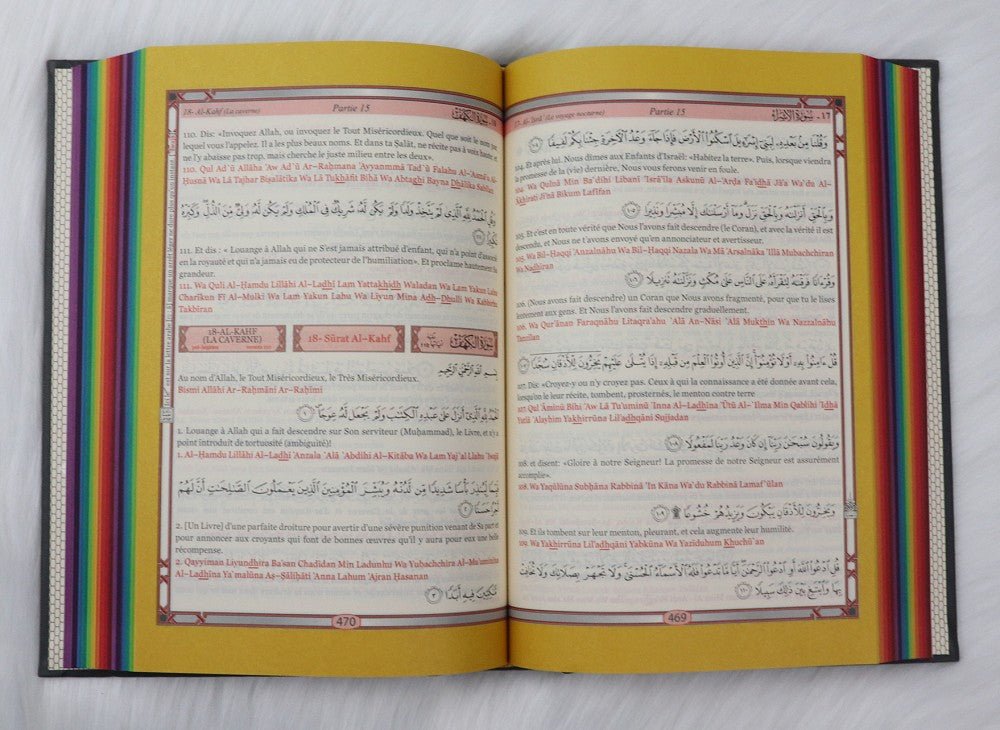 17- Al- Isrâ' (Le voyage nocturne) Partie 15 ١٧ - سورة الإسراء
وَقُلْنَا مِنْ بَعْدِهِ لِبَنِي إِسْرَائِيلَ اسْكُنُوا الْأَرْضَ فَإِذَا جَاءَ وَعْدُ الْآخِرَةِ جِئْنَا بِكُمْ لَفِيفًا ١٠٤
104. Et après lui, Nous dîmes aux Enfants d'Israël: «Habitez la terre». Puis, lorsque viendra
la promesse de la (vie) dernière, Nous vous ferons venir en foule.
104. Wa Qulnā Min Ba`dihi Libanī 'Isrā'īla Askunū Al–'Arđa Fa'idhā Jā'a Wa`du Al–
'Ākhirati Ji'nā Bikum Lafīfan
وَبِالْحَقِّ أَنْزَلْنَاهُ وَبِالْحَقِّ نَزَلَ وَمَا أَرْسَلْنَاكَ إِلَّا مُبَشِّرًا وَنَذِيرًا ١٠٥
105. Et c'est en toute vérité que Nous l'avons fait descendre (le Coran), et avec la vérité il est
descendu, et Nous ne t'avons envoyé qu'en annonciateur et avertisseur.
105. Wa Bil–Haqqi 'Anzalnāhu Wa Bil–Haqqi Nazala Wa Mā 'Arsalnāka 'Illā Mubachchiran
Wa Nadhīran
وَقُرْآنًا فَرَقْنَاهُ لِتَقْرَأَهُ عَلَى النَّاسِ عَلَى مُكْثٍ وَنَزَّلْنَاهُ تَنْزِيلًا ١٠٦
106. (Nous avons fait descendre) un Coran que Nous avons fragmenté, pour que tu le lises
lentement aux gens. Et Nous l'avons fait descendre graduellement.
106. Wa Qur'ānan Faraqnāhu Litaqra'ahu `Alá An–Nāsi `Alá Mukthin Wa Nazzalnāhu
Tanzīlan
قُلْ آمِنُوا بِهِ أَوْ لَا تُؤْمِنُوا إِنَّ الَّذِينَ أُوتُوا الْعِلْمَ مِنْ قَبْلِهِ إِذَا يُتْلَى عَلَيْهِمْ يَخِرُّونَ لِلْأَذْقَانِ سُجَّدًا ١٠٧
107. Dis: «Croyez-y ou n'y croyez pas. Ceux à qui la connaissance a été donnée avant cela,
lorsqu'on leur récite, tombent, prosternés, le menton contre terre
107. Qul 'Āminū Bihi 'Aw Lā Tu'uminū 'Inna Al–Ladhīna 'Ūtū Al–`Ilma Min Qablihi 'Idhā
Yutlá `Alayhim Yakhirrūna Lil'adhqāni Sujjadan
وَيَقُولُونَ سُبْحَانَ رَبِّنَا إِنْ كَانَ وَعْدُ رَبِّنَا لَمَفْعُولًا ١٠٨
108. et disent: «Gloire à notre Seigneur! La promesse de notre Seigneur est assurément
accomplie».
108. Wa Yaqūlūna Subĥāna Rabbinā 'In Kāna Wa`du Rabbinā Lamaf`ūlan
وَيَخِرُّونَ لِلْأَذْقَانِ يَبْكُونَ وَيَزِيدُهُمْ خُشُوعًا ۩ ١٠٩
109. Et ils tombent sur leur menton, pleurant, et cela augmente leur humilité.
109. Wa Yakhirrūna Lil'adhqāni Yabkūna Wa Yazīduhum Khuchū`an
قُلِ ادْعُوا اللَّهَ أَوِ ادْعُوا الرَّحْمَنَ أَيًّا مَا تَدْعُوا فَلَهُ الْأَسْمَاءُ الْحُسْنَى وَلَا تَجْهَرْ بِصَلَاتِكَ وَلَا تُخَافِتْ
بِهَا وَابْتَغِ بَيْنَ ذَلِكَ سَبِيلًا ١١٠
469
18- Al-Kahf (La caverne) Partie 15 ١٨ - سورة الكهف
110. Dis: «Invoquez Allah, ou invoquez le Tout Miséricordieux. Quel que soit le nom par
lequel vous l'appelez. Il a les plus beaux noms. Et dans ta Ṣalât, ne récite pas à voix haute; et
ne l'y abaisse pas trop, mais cherche le juste milieu entre les deux».
110. Qul Ad`ū Allāha 'Aw Ad`ū Ar–Raĥmana 'Ayyanmmā Tad`ū Falahu Al–'Asmā'u Al–
Ĥusná Wa Lā Tajhar Biṣalātika Wa Lā Tukhāfit Bihā Wa Abtaghi Bayna Dhālika Sabīlan
وَقُلِ الْحَمْدُ لِلَّهِ الَّذِي لَمْ يَتَّخِذْ وَلَدًا وَلَمْ يَكُنْ لَهُ شَرِيكٌ فِي الْمُلْكِ وَلَمْ يَكُنْ لَهُ وَلِيٌّ مِنَ الذُّلِّ وَكَبِّرْهُ
تَكْبِيرًا ١١١
111. Et dis : « Louange à Allah qui ne S'est jamais attribué d'enfant, qui n'a point d'associé
en la royauté et qui n'a jamais eu de protecteur de l'humiliation». Et proclame hautement Sa
grandeur.
111. Wa Quli Al–Ĥamdu Lillāhi Al–Ladhī Lam Yattakhidh Waladan Wa Lam Yakun Lahu
Charīkun Fī Al–Mulki Wa Lam Yakun Lahu Wa Līyun Mina Adh–Dhulli Wa Kabbirhu
Takbīran
18-AL-KAHF
(LA CAVERNE)
18- Sūrat Al-Kahf
سورة الكهف
بِسْمِ اللَّهِ الرَّحْمَنِ الرَّحِيمِ
Au nom d'Allah, le Tout Miséricordieux, le Très Miséricordieux.
Bismi Allāhi Ar–Raĥmāni Ar–Raĥīmi
الْحَمْدُ لِلَّهِ الَّذِي أَنْزَلَ عَلَى عَبْدِهِ الْكِتَابَ وَلَمْ يَجْعَلْ لَهُ عِوَجًا ١
1. Louange à Allah qui a fait descendre sur Son serviteur (Muḥammad), le Livre, et n'y a
point introduit de tortuosité (ambiguïté)!
1. Al–Ĥamdu Lillāhi Al–Ladhī 'Anzala `Alá `Abdihi Al–Kitāba Wa Lam Yaj`al Lahu `Iwajā
قَيِّمًا لِيُنْذِرَ بَأْسًا شَدِيدًا مِنْ لَدُنْهُ وَيُبَشِّرَ الْمُؤْمِنِينَ الَّذِينَ يَعْمَلُونَ الصَّالِحَاتِ أَنَّ لَهُمْ
أَجْرًا حَسَنًا ٢
2. [Un Livre] d'une parfaite droiture pour avertir d'une sévère punition venant de Sa part et
pour annoncer aux croyants qui font de bonnes œuvres qu'il y aura pour eux une belle
récompense.
2. Qayyiman Liyundhira Ba'san Chadīdan Min Ladunhu Wa Yubachchira Al–Mu'uminīna
Al–Ladhīna Ya`malūna Aṣ–Ṣāliĥāti 'Anna Lahum 'Ajran Ĥasanan
مَاكِثِينَ فِيهِ أَبَدًا ٣
470